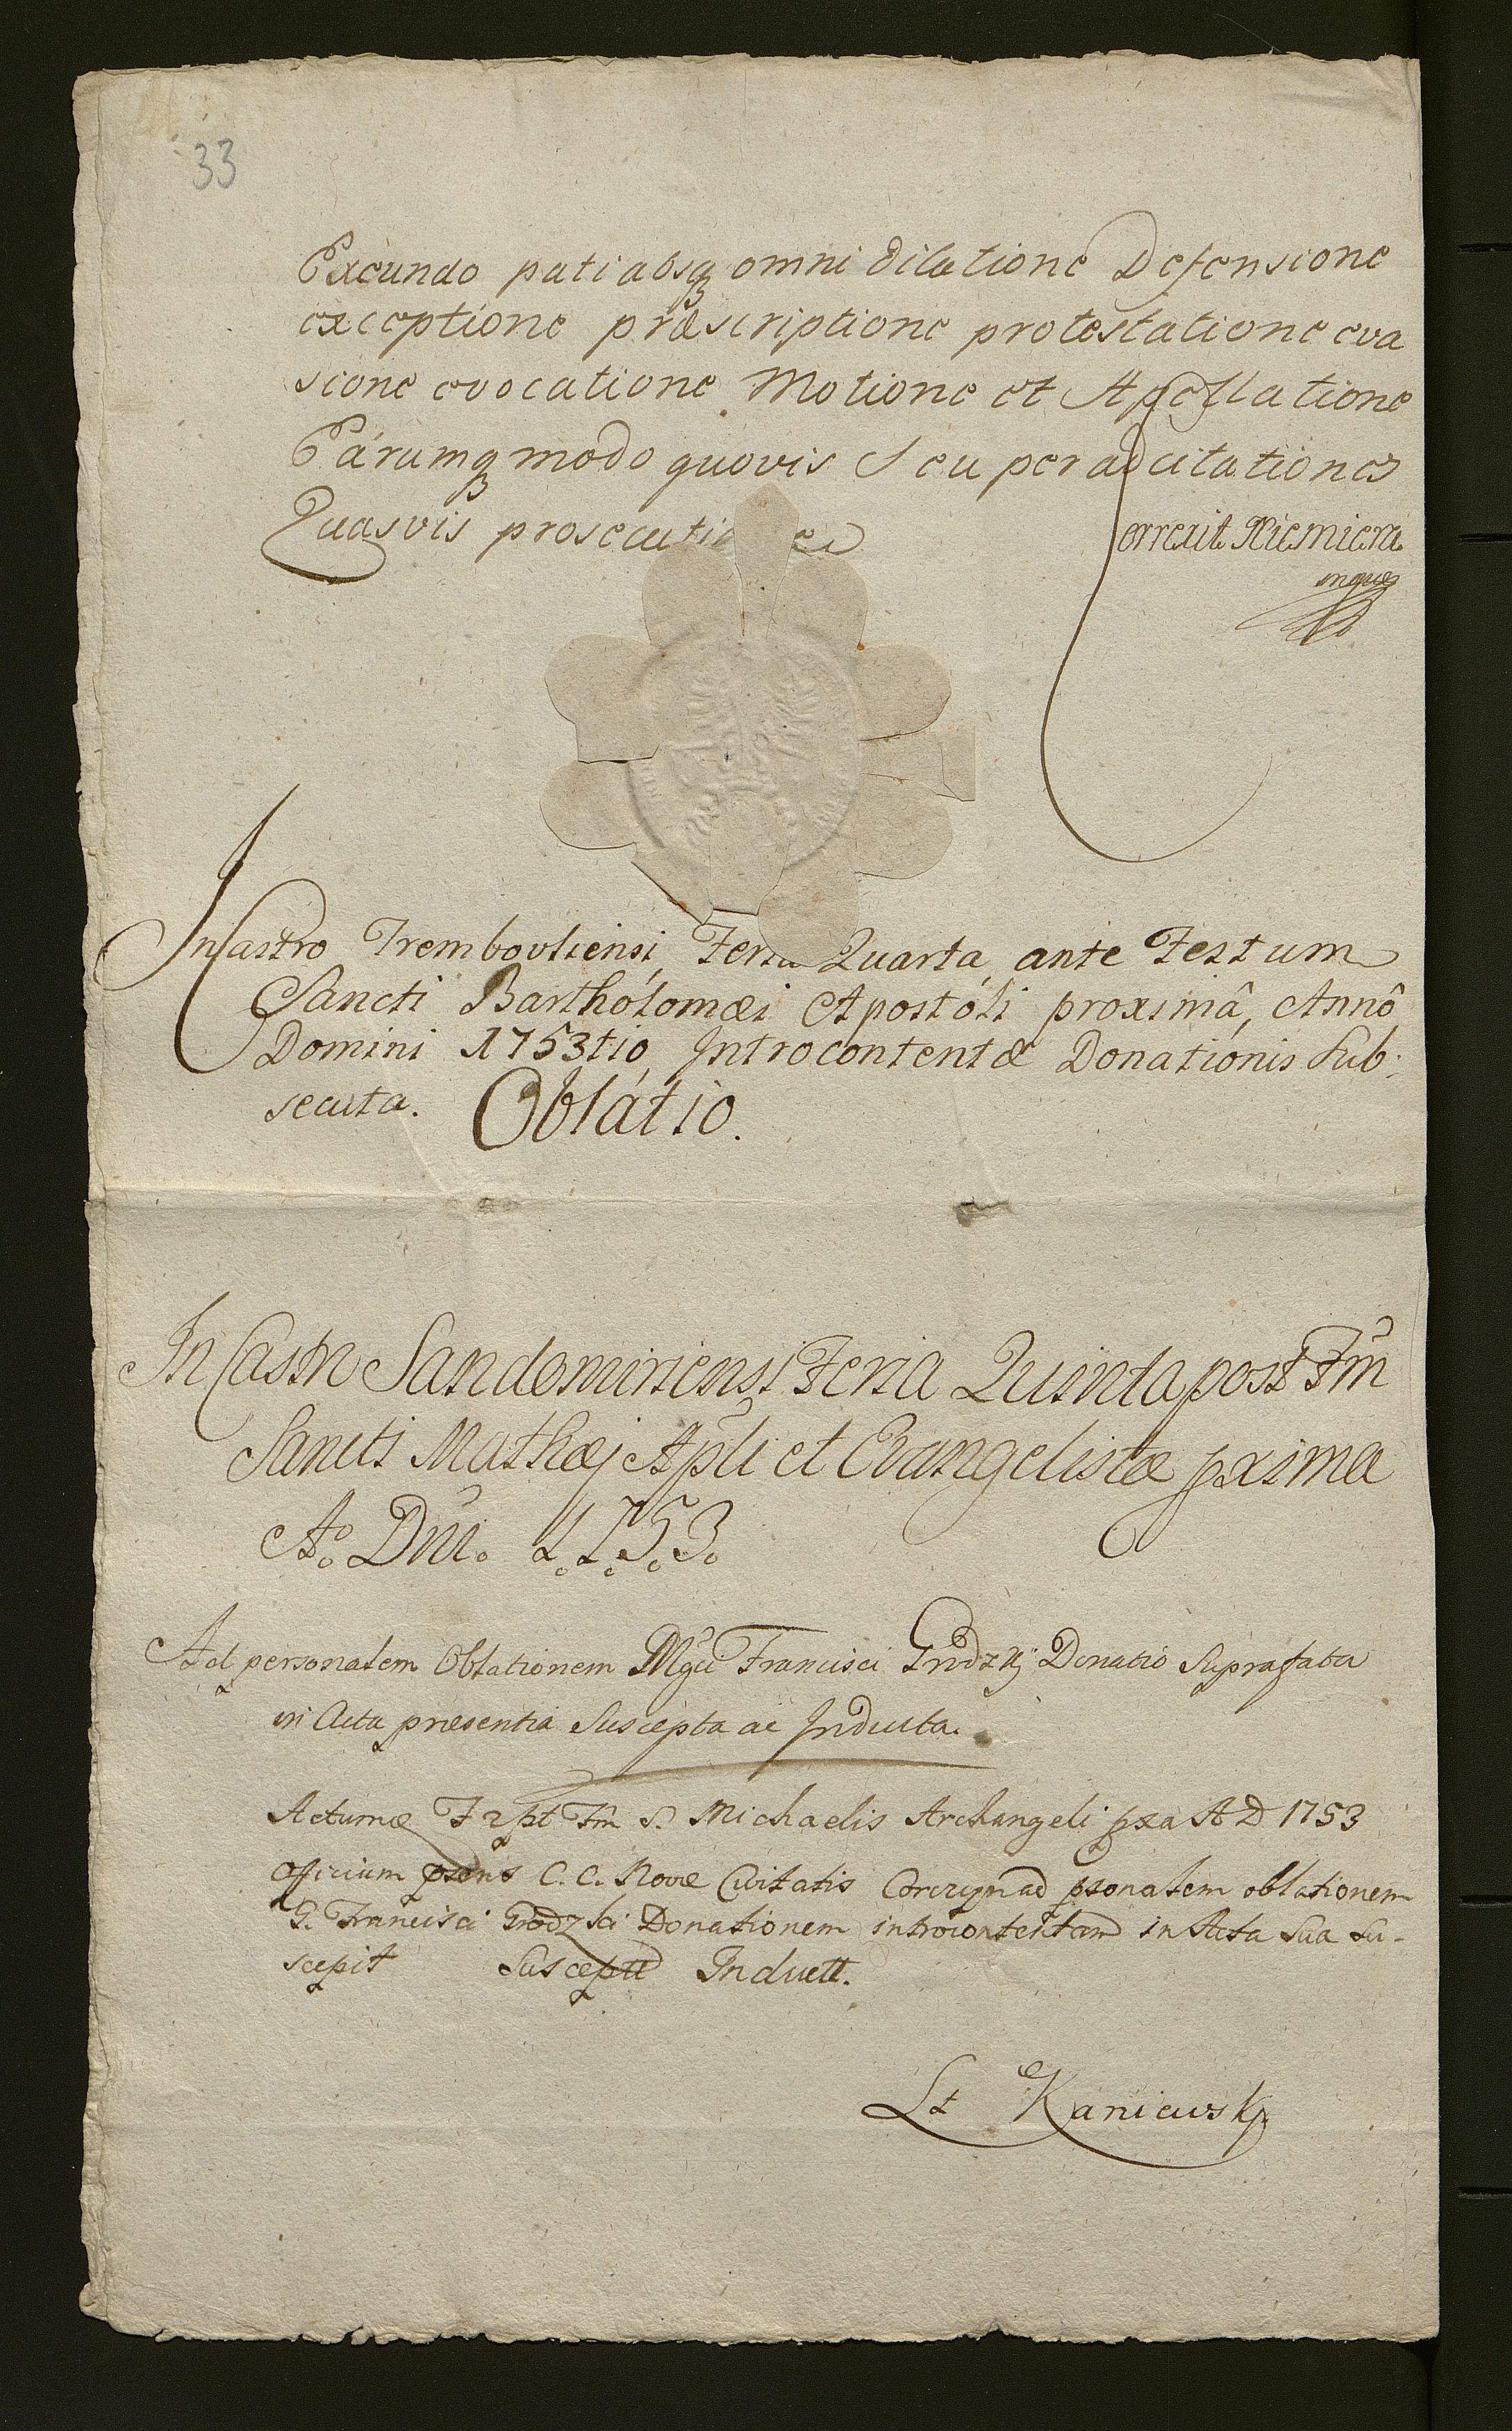 33
Eaeundo pati absq omni dilatione Defensione
exceptione præscriptione protestatione eva
sione evocatione Motione et Apellatione
Earumq modo quovis Seu per adcitationes
Quasvis prosecutio
Correxit Niemiera
mque
In Castro Trembovliensi, Feria Quarta, ante Festum
Sancti Barthólomæi Apostóli proximâ, Annô
Domini 1753tio, Introcontentæ Donationis Sub:
secuta. Oblátio.
In Castro Sandomiriensi Feria Quinta post Fm
Sancti Mathæj Apli et Evangelistæ pxima
Ao. Dni. 1.7.5.3.
Ad personalem Oblationem Mgci Francisci Grodzkj Donatio Suprafata
in Acta præsentia Suscepta ac Inducta.
Actumæ F 2 pst Fm S. Michaelis Archangeli pxa A D 1753
Officium psens C. C. Novæ Civitatis Corczyn ad psonalem oblationem
G. Francisci Grodzki Donationem introcontentam in Acta Sua Su-
scepit Susceptt Inductt.
Lt Kaniewski